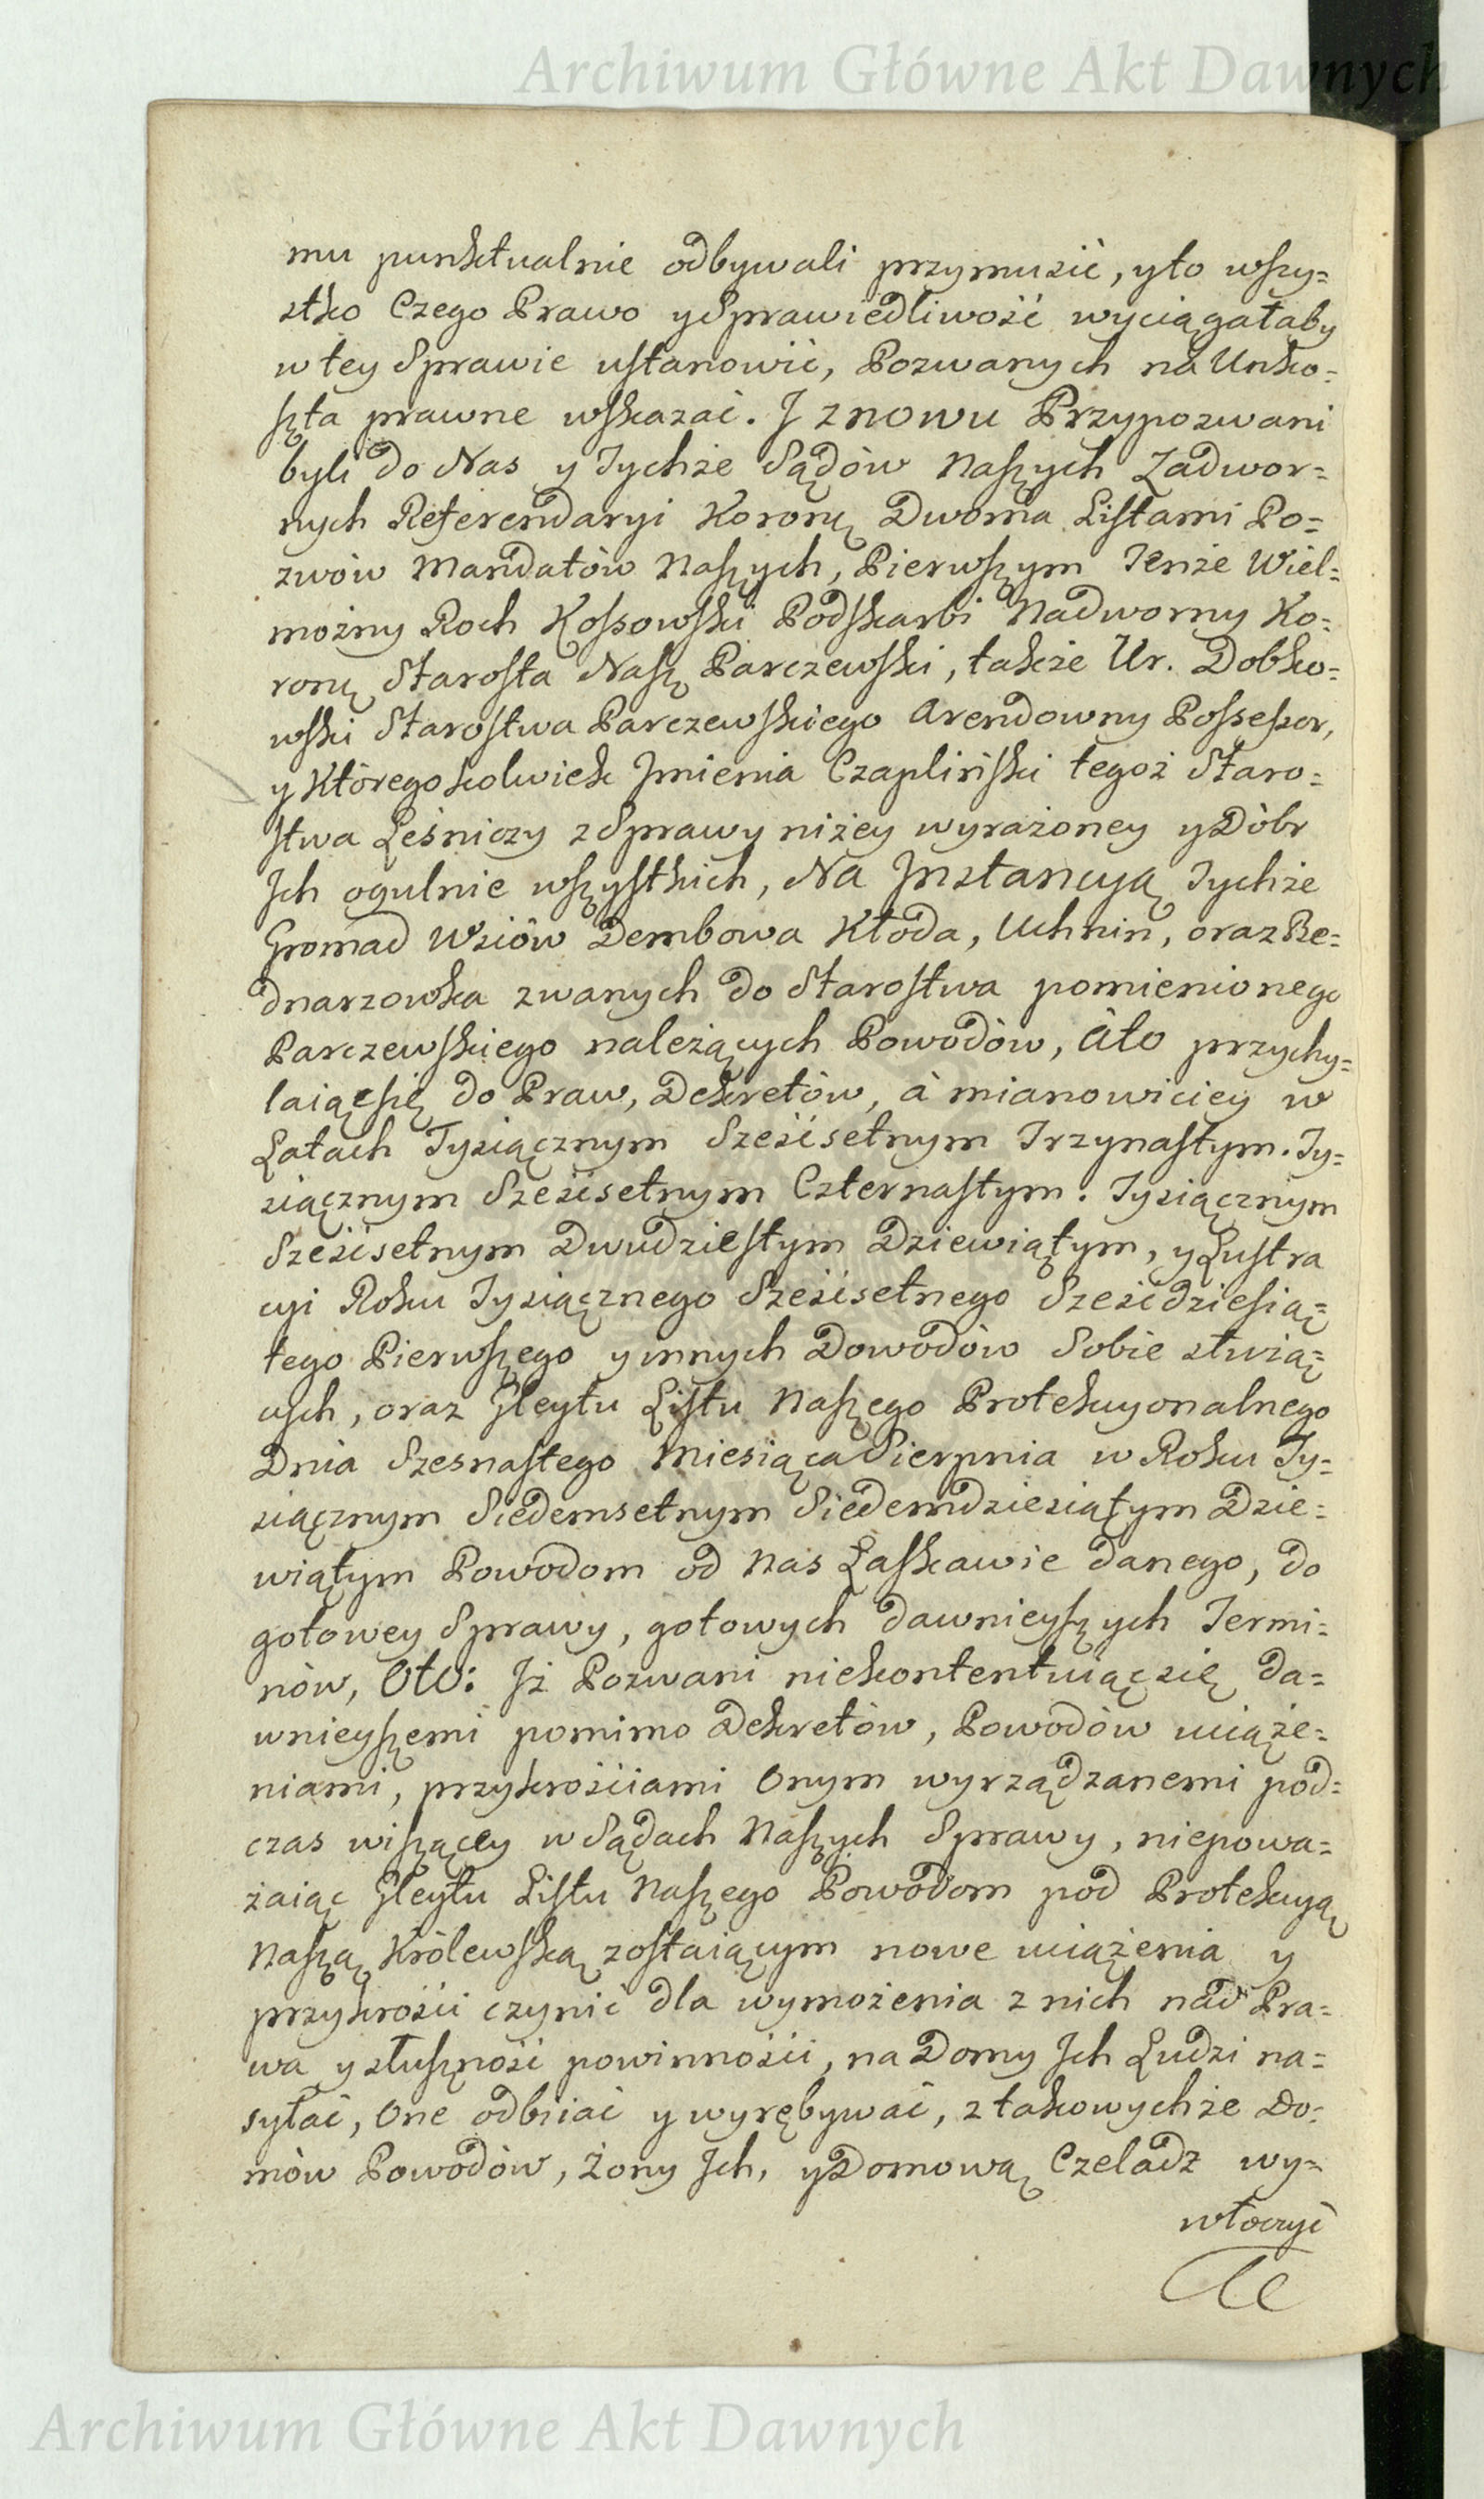 Archiwum Główne Akt Dawnych
mu punktualnie odbywali przymusić, yto wszy=
stko Czego Prawo ySprawiedliwość wyciągałaby
w tey Sprawie ustanowić, Pozwanych na Unko=
szta prawne wskazać. I znowu Przypozwani
byli do Nas y Tychże Sądów Naszych Zadwor=
nych Referendaryi Koronę Dwoma Listami Po=
zwów Mandatów Naszych, Pierwszym Tenże Wiel=
możny Roch Kossowski Podskarbi Nadworny Ko=
ronę Starosta Nasz Parczewski, także Ur. Dobko=
wski Starostwa Parczewskiego Arendowny Possessor,
y Któregokolwiek Jmienia Czapliński tegoż Staro=
stwa Leśniczy z Sprawy niżey wyrażoney yDóbr
Jch ogulnie wszystkich, Na Jnstancyą Tychże
Gromad Wsiów Dembowa Kłoda, Uchnin, oraz Be=
dnarzowka zwanych do Starostwa pomienionego
Parczewskiego należących Powodów, Ato przychy=
laiąc się do Praw, Dekretów, à mianowiciey w
Latach Tysiącznym Sześćsetnym Trzynastym. Ty=
siącznym Sześćsetnym Czternastym. Tysiącznym
Sześćsetnym Dwudziestym Dziewiątym, y Lustra
cyi Roku Tysiącznego Sześćsetnego Sześćdziesią=
tego Pierwszego y innych Dowodów Sobie służą=
cych, oraz Gleytu Listu Naszego Protekcyonalnego
Dnia Szesnastego Miesiąca Sierpnia w Roku Ty=
siącznym Siedemsetnym Siedemdziesiątym Dzie=
wiątym Powodom od Nas Łaskawie danego, do
gotowey Sprawy, gotowych dawnieyszych Termi=
nów, Oto: Jż Pozwani niekontentuiąc się da=
wnieyszemi pomimo Dekretów, Powodów uciąże=
niami, przykrościami Onym wyrządzanemi pod=
czas wiszącey w Sądach Naszych Sprawy, niepowa=
żaiąc Gleytu Listu Naszego Powodom pod Protekcyą
Naszą Królewską zostaiącym nowe uciążenia y
przykrości czynić dla wymożenia z nich nad Pra=
wa y słuszność powinności, na Domy Jch Ludzi na=
syłać, One odbiiać y wyrębywać, z takowychże Do=
mów Powodów, Żony Jch, yDomową Czeladz wy=
włoczyć
Archiwum Główne Akt Dawnych